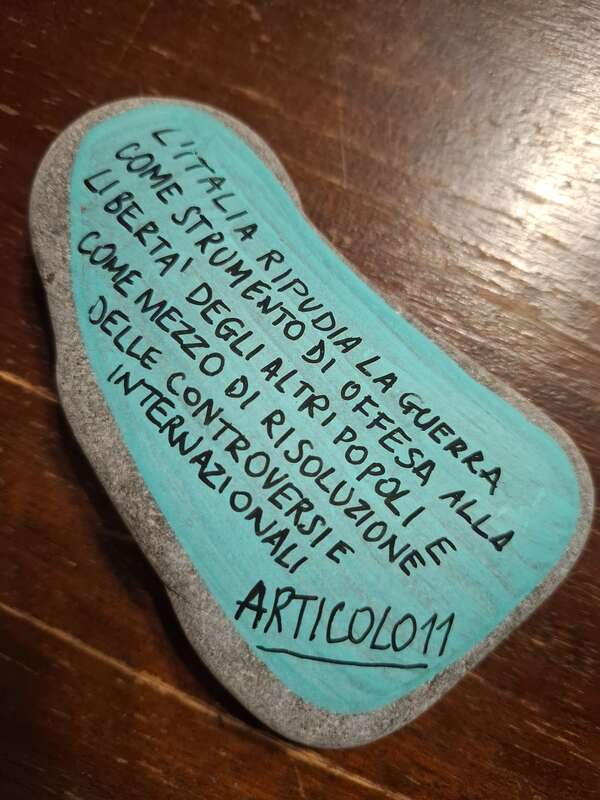 L'ITALIA RIPUDIA LA GUERRA
COME STRUMENTO DI OFFESA ALLA
LIBERTA' DEGLI ALTRI POPOLI E
COME MEZZO DI RISOLUZIONE
DELLE CONTROVERSIE
INTERNAZIONALI
ARTICOLO 11